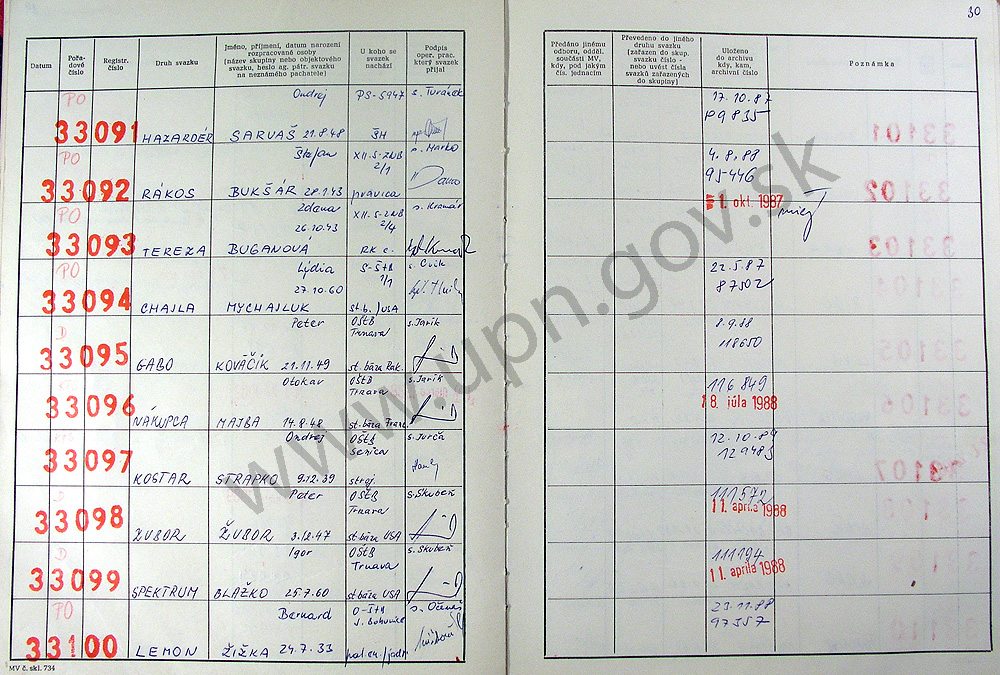 30
Datum
Pořadové číslo
Registr. číslo
Druh svazku
Jméno, příjmení, datum narození rozpracované osoby (název skupiny nebo objektového svazku, heslo ag. pátr. svazku na neznámého pachatele)
U koho se svazek nachází
Podpis oper. prac. který svazek přijal
Předáno jinému odboru, odděl. součásti MV, kdy, pod jakým čís. jednacím
Převedeno do jiného druhu svazku (zařazen do skup. svazku číslo - nebo uvést čísla svazků zařazených do skupiny)
Uloženo do archivu kdy, kam, archivní číslo
Poznámka
PO Ondrej PS-5947 s. Turánek 17.10.87
33091 HAZARDÉR SARVAŠ 21.8.48 ŠH 89835
PO Štefan XII.S-ZNB 2/1 s. Marko 4.8.88
33092 RÁKOS BUKŠÁR 28.1.43 pravica 95446
PO Zdena XII.S-ZNB 2/4 s. Kramár 1. okt. 1987
33093 TEREZA BUGANOVÁ 26.10.43 RK c.
PO Lýdia S-ŠtB 1/1 s. Cvik 22.5.87
33094 CHAJLA MYCHAJLUK 27.10.60 st.b./USA 87502
D Peter OŠtB Trnava s. Jarik 8.9.88
33095 GABO KOVÁČIK 21.11.49 st. báza Rak. 118650
Otokar OŠtB Trnava s. Jarik 116 849
33096 NÁKUPCA MAJBA 14.8.48 st. báza Franc. 18. júla 1988
Ondrej OŠtB Senica s. Jurča 12.10.89
33097 KOSTAR STRAPKO 9.12.39 stroj. 129483
D Peter OŠtB Trnava s. Skubeň 111572
33098 ŽUBOR ŽUBOR 3.12.47 st. báza USA 11. apríla 1988
D Igor OŠtB Trnava s. Skubeň 111194
33099 SPEKTRUM BLAŽKO 25.7.60 st. báza USA 11. apríla 1988
PO Bernard J. Bohunice s. Očenáš 23.11.88
33100 LEMON ŽIŽKA 24.7.33 pal.en./jadr. 97357
MV č. skl. 734
www.upn.gov.sk